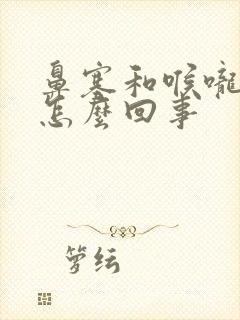 鼻塞和喉嚨
怎麼回事
箩纭